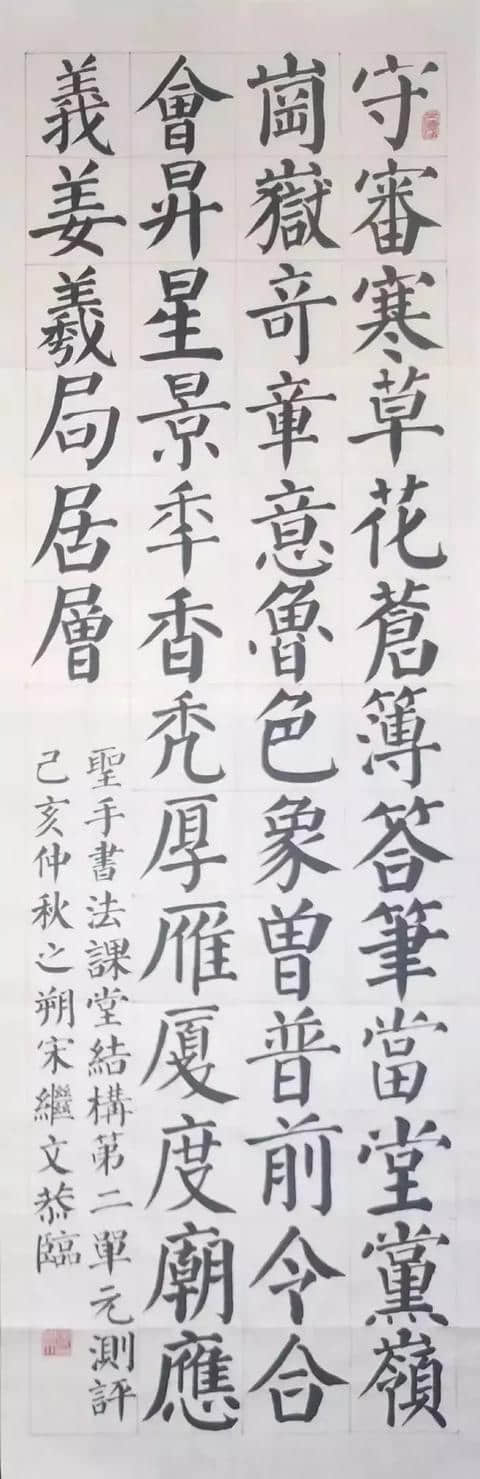 守審寒草花蒼簿答筆當堂黨嶺
崗嶽奇童意魯色象曾普前令合
會昇星景季香禿厚雁厦度廟應
義姜羲局居層
聖手書法課堂結構第二單元測評
己亥仲秋之朔宋繼文恭臨